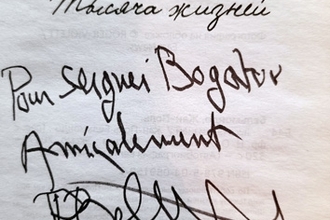 Тысяча жизней
Pour Serguei Bogatov
Amicalement